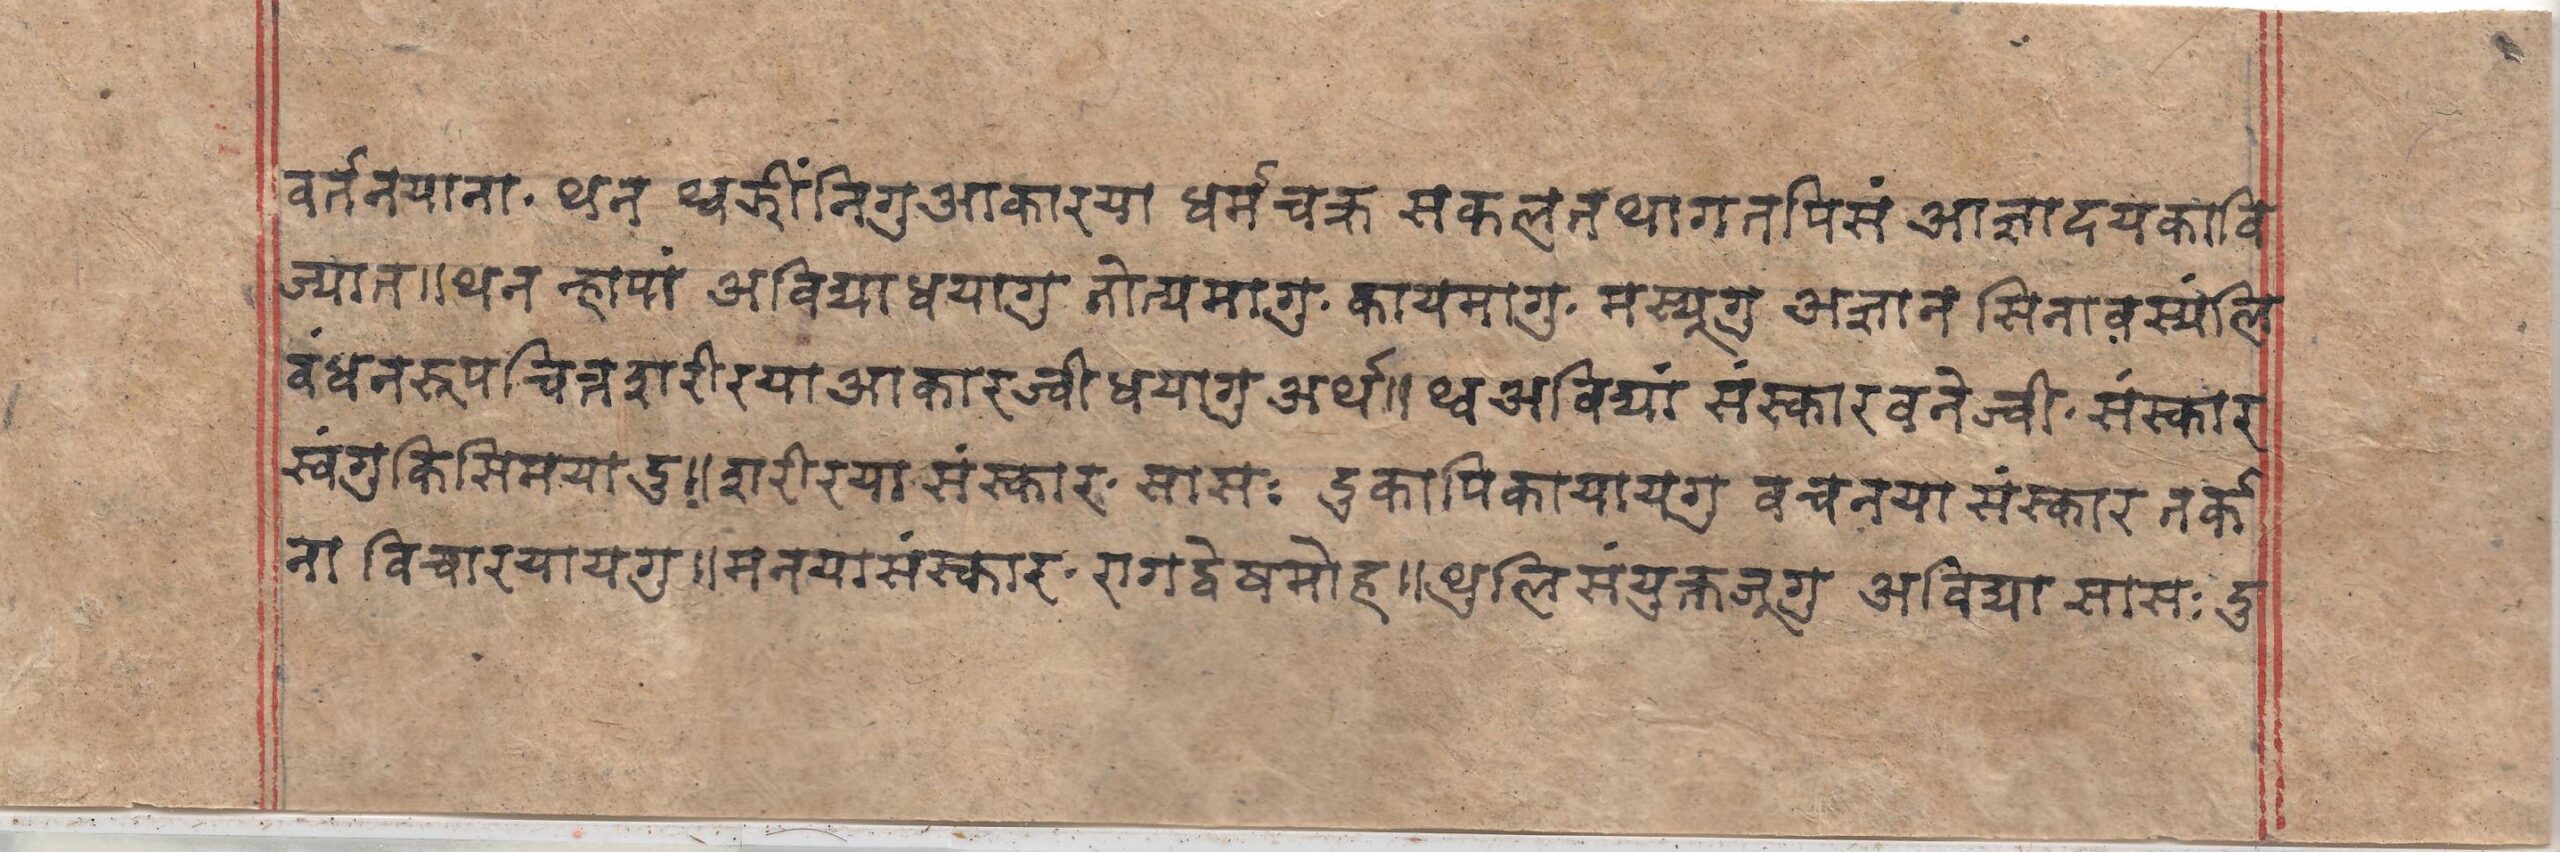 वर्तनयाना॰ थन थ्वझींनिगुआकारया धर्मचक्र सकलतथागतपिसं आज्ञादयकावि
ज्यात॥थन न्हापां अविद्याधयागु तोत्यमागु॰ कायमागु॰ मस्यूगु अज्ञान सिनावस्यंलि
वंधनरूपचित्तशरीरयाआकारज्वीधयागुअर्थ॥ थ्वअविद्यां संस्कारवनेज्वी॰ संस्कार
स्वंगुकिसिमयादु॥शरीरया संस्कार॰ सासः दुकापिकायायगु वचनया संस्कार तर्क
ना विचारयायगु॥मनयासंस्कार॰ रागद्वेषमोह॥थुलिसंयुक्तजूगु अविद्या सासः दु